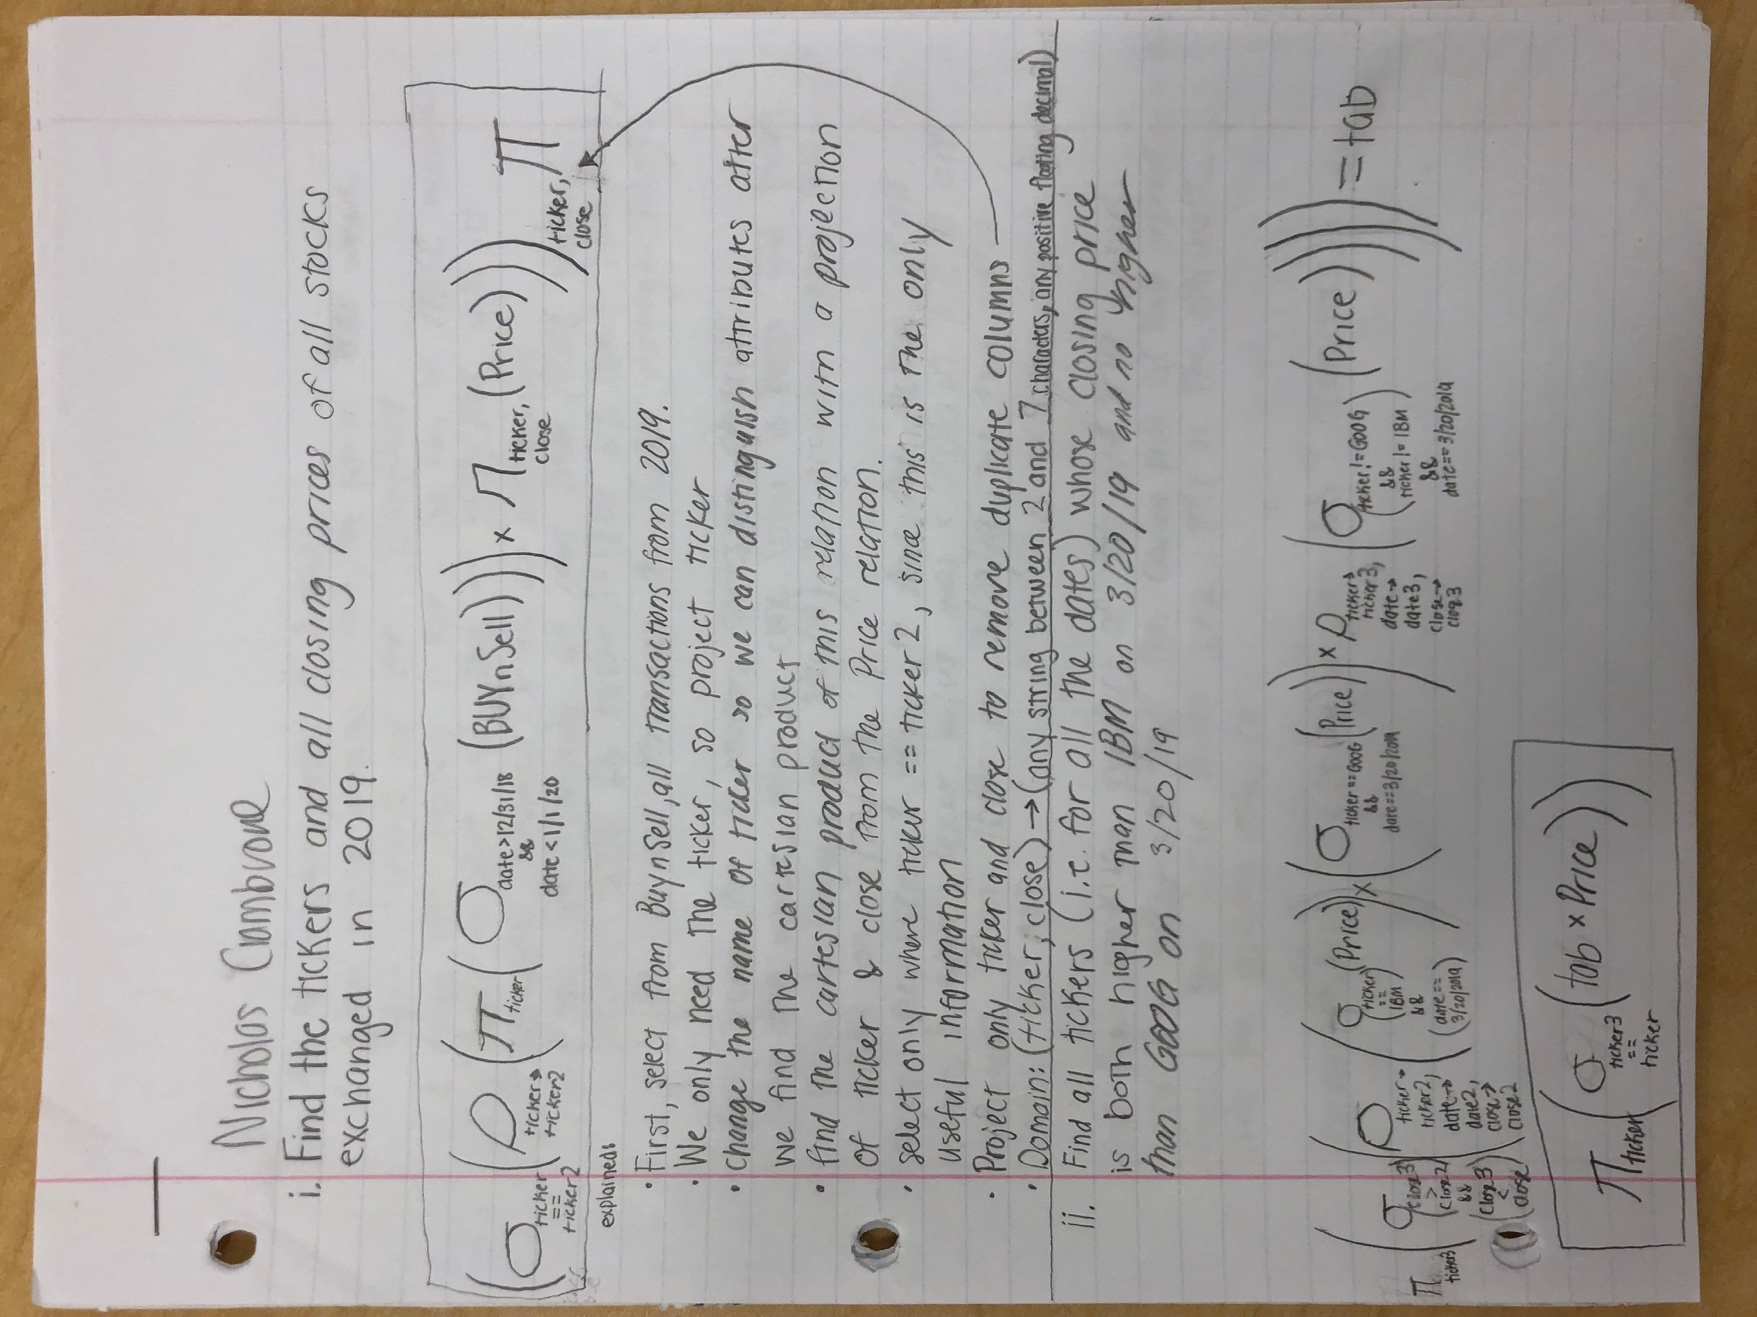 Nicholas Ciambrone
i. Find the tickers and all closing prices of all stocks
exchanged in 2019.
(σ ticker == ticker2 (ρ ticker→ticker2 (π ticker (σ date>12/31/18 && date<1/1/20 (BUYnSell)))) x π ticker, close (Price))) π ticker, close
explained:
• First, select from BuynSell, all transactions from 2019.
• We only need the ticker, so project ticker
• Change the name of ticker so we can distinguish attributes after
we find the cartesian product
• find the cartesian product of this relation with a projection
of ticker & close from the Price relation.
• select only where ticker == ticker2, since this is the only
useful information
• Project only ticker and close to remove duplicate columns
• Domain: (ticker, close) → (any string between 2 and 7 characters, any positive floating decimal)
ii. Find all tickers (i.e. for all the dates) whose closing price
is both higher than IBM on 3/20/19 and no higher
than GOOG on 3/20/19
π ticker3 (σ (close3 > close2) && (close3 < close) (ρ ticker→ticker2, date→date2, close→close2 (σ (ticker == IBM) && (date == 3/20/2019) (Price)) x (σ ticker==GOOG && date==3/20/2019 (Price)) x ρ ticker→ticker3, date→date3, close→close3 (σ ticker!=GOOG && ticker!=IBM && date==3/20/2019 (Price))))) = tab
π ticker (σ ticker3 == ticker (tab x Price))